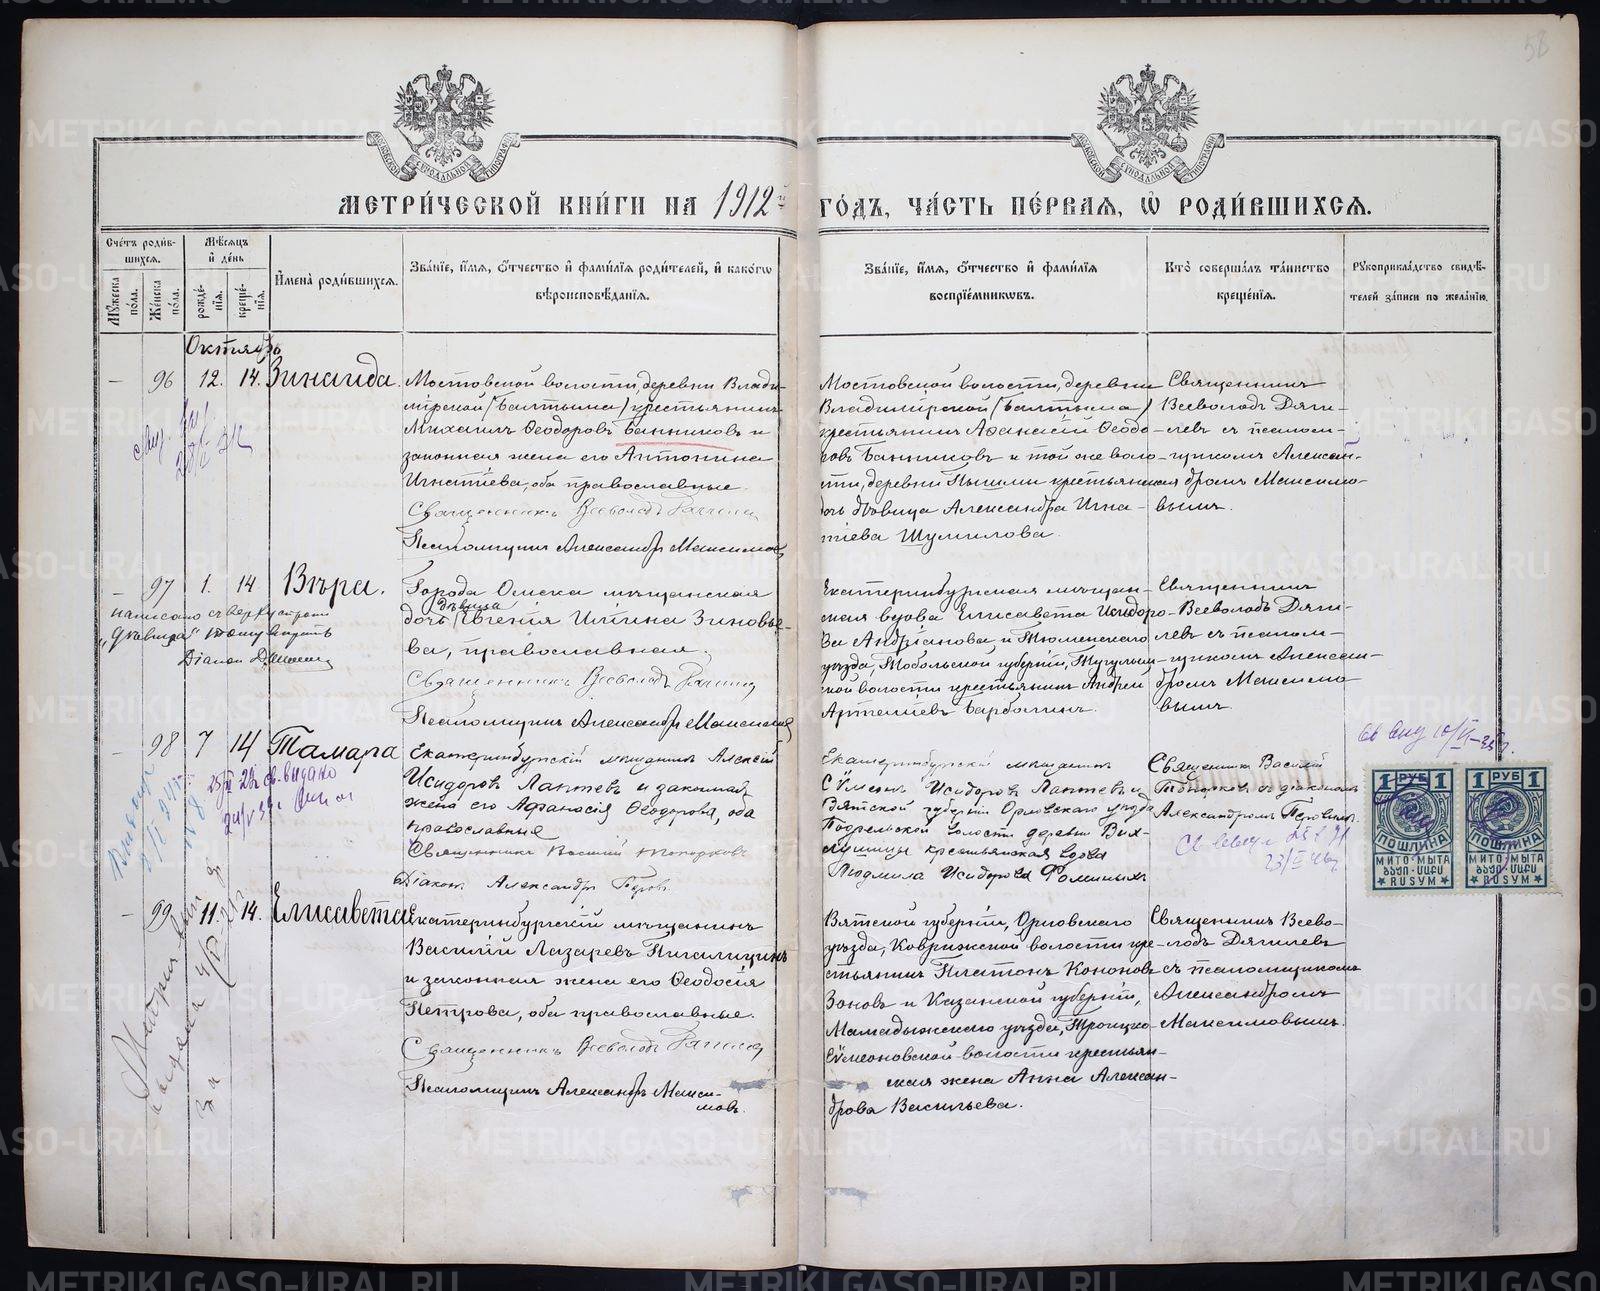 58
МЕТРИ́ЧЕСКОЙ КНИ́ГИ НА 1912й ГО́ДЪ, ЧА́СТЬ ПЕ́РВАЯ, Ѡ҆ РОДИ́ВШИХСЯ.
Сче́тъ роди́в-
шихся.
Му́жеска по́ла.
Же́нска по́ла.
Мѣ́сяцъ и҆ де́нь
рожде́-нїя.
креще́-нїя.
И҆мена̀ роди́вшихся.
Зва́нїе, и҆́мя, ѻ҆́тчество и҆ фами́лїя роди́телей, и҆ како́гѡ
вѣроисповѣ́данїя.
Зва́нїе, и҆́мя, ѻ҆́тчество и҆ фами́лїя
воспрїе́мниковъ.
Кто̀ соверша́лъ та́инство
креще́нїя.
Рꙋкоприкла́дство свидѣ́-
телей за́писи по жела́нїю.
Октябрь
— 96 12. 14. Зинаида.
Мостовской волости, деревни Влади-
мірской (Балтыма) крестьянинъ
Михаилъ Ѳеодоровъ Банниковъ и
законная жена его Антонина
Игнатіева, оба православные.
Священникъ Всеволодъ Дягилевъ
Псаломщикъ Александръ Максимовъ
Мостовской волости, деревни
Владимірской (Балтыма)
крестьянинъ Аѳанасій Ѳеодо-
ровъ Банниковъ и той же воло-
сти, деревни Пышмы крестьянская
дочь дѣвица Александра Игна-
тіева Шумилова.
Священникъ
Всеволодъ Дяги-
левъ съ псалом-
щикомъ Алексан-
дромъ Максимо-
вымъ.
— 97 1. 14 Вѣра.
написано сверху строки
„дѣвица"
Діаконъ
Города Омска мѣщанская
дѣвица
дочь Евгенія Ильина Зиновье-
ва, православная.
Священникъ Всеволодъ Дягилевъ
Псаломщикъ Александръ Максимовъ
Екатеринбургская мѣщан-
ская вдова Елисавета Исидоро-
ва Андріанова и Тюменскаго
уѣзда, Тобольской губерніи, Тугулым-
ской волости крестьянинъ Андрей
Артеміевъ Барбалинъ.
Священникъ
Всеволодъ Дяги-
левъ съ псалом-
щикомъ Алексан-
дромъ Максимо-
вымъ.
— 98 7 14 Тамара
Екатеринбургскій мѣщанинъ Алексій
Исидоровъ Лаптевъ и законная
жена его Аѳанасія Ѳеодорова, оба
православные
Священникъ Василій Топорковъ
Діаконъ Александръ Петровъ
Екатеринбургскій мѣщанинъ
Сѵмеонъ Исидоровъ Лаптевъ и
Вятской губерніи Орловскаго уѣзда
Подрельской волости деревни
крестьянская вдова
Людмила Исидорова Фоминыхъ
Священникъ Василій
Топорковъ съ діакономъ
Александромъ Петровымъ
1 РУБ 1
ПОШЛИНА
МИТО·МЫТА
RUSUM
1 РУБ 1
ПОШЛИНА
МИТО·МЫТА
RUSUM
— 99 11. 14. Елисавета
Екатеринбургскій мѣщанинъ
Василій Лазаревъ Пигалицинъ
и законная жена его Ѳеодосія
Петрова, оба православные.
Священникъ Всеволодъ Дягилевъ
Псаломщикъ Александръ Макси-
мовъ.
Вятской губерніи, Орловскаго
уѣзда, Коврижской волости кре-
стьянинъ Платонъ Кононовъ
Зоновъ и Казанской губерніи,
Мамадыжскаго уѣзда, Троицко-
Сѵмеоновской волости крестьян-
ская жена Анна Алексан-
дрова Васильева.
Священникъ Всево-
лодъ Дягилевъ
съ псаломщикомъ
Александромъ
Максимовымъ.
METRIKI.GASO-URAL.RU